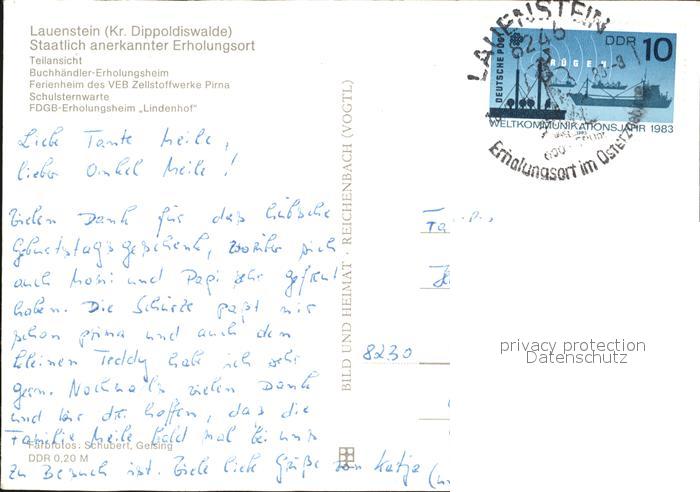 Lauenstein (Kr. Dippoldiswalde)
Staatlich anerkannter Erholungsort
Teilansicht
Buchhändler-Erholungsheim
Ferienheim des VEB Zellstoffwerke Pirna
Schulsternwarte
FDGB-Erholungsheim „Lindenhof"
LAUENSTEIN
8246
Erholungsort im Osterzgebirge
DEUTSCHE POST
DDR 10
RÜGEN
WELTKOMMUNIKATIONSJAHR 1983
Liebe Tante Meile,
lieber Onkel Meile!
Vielen Dank für das hübsche
Geburtstagsgeschenk, worüber sich
auch Mami und Papi sehr gefreut
haben. Die Schürze paßt mir
schon prima und auch den
kleinen Teddy hab ich sehr
gern. Nochmals vielen Dank
und wir hoffen, das die
Familie Meile bald mal bei uns
zu Besuch ist. Viele liebe Grüße von Katja
BILD UND HEIMAT · REICHENBACH (VOGTL)
8230
privacy protection
Datenschutz
Farbfotos: Schubert, Geising
DDR 0,20 M